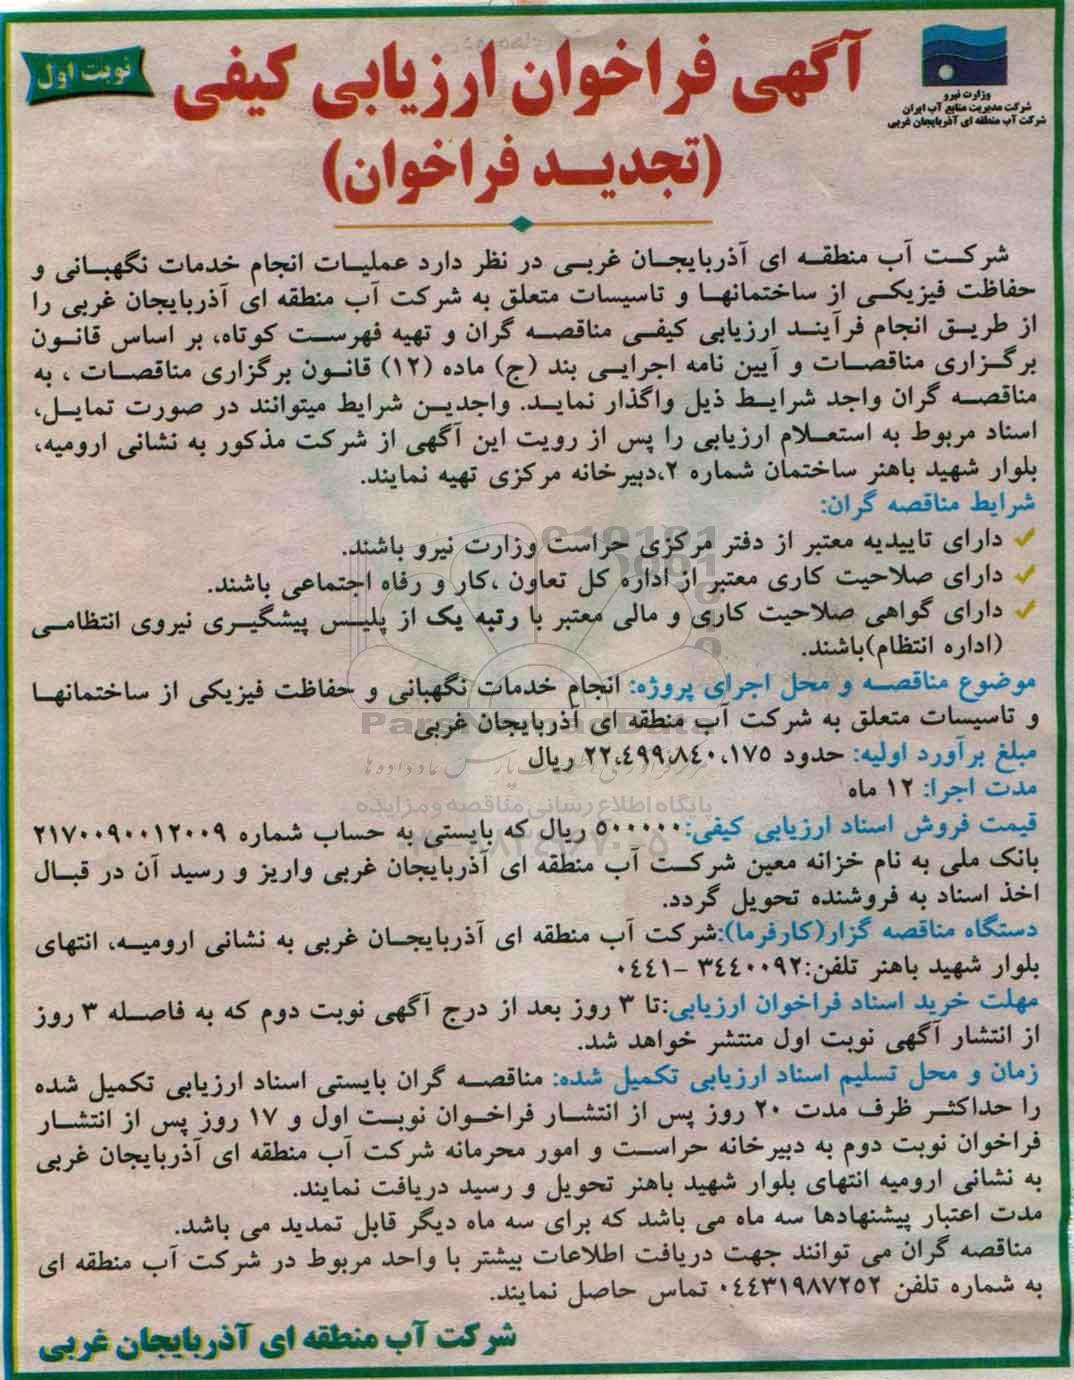 وزارت نیرو
شرکت مدیریت منابع آب ایران
شرکت آب منطقه ای آذربایجان غربی
نوبت اول
آگهی فراخوان ارزیابی کیفی
(تجدید فراخوان)
شرکت آب منطقه ای آذربایجان غربی در نظر دارد عملیات انجام خدمات نگهبانی و
حفاظت فیزیکی از ساختمانها و تاسیسات متعلق به شرکت آب منطقه ای آذربایجان غربی را
از طریق انجام فرآیند ارزیابی کیفی مناقصه گران و تهیه فهرست کوتاه، بر اساس قانون
برگزاری مناقصات و آیین نامه اجرایی بند (ج) ماده (۱۲) قانون برگزاری مناقصات ، به
مناقصه گران واجد شرایط ذیل واگذار نماید. واجدین شرایط میتوانند در صورت تمایل،
اسناد مربوط به استعلام ارزیابی را پس از رویت این آگهی از شرکت مذکور به نشانی ارومیه،
بلوار شهید باهنر ساختمان شماره ۲،دبیرخانه مرکزی تهیه نمایند.
شرایط مناقصه گران:
✓ دارای تاییدیه معتبر از دفتر مرکزی حراست وزارت نیرو باشند.
✓ دارای صلاحیت کاری معتبر از اداره کل تعاون ،کار و رفاه اجتماعی باشند.
✓ دارای گواهی صلاحیت کاری و مالی معتبر با رتبه یک از پلیس پیشگیری نیروی انتظامی
(اداره انتظام)باشند.
موضوع مناقصه و محل اجرای پروژه: انجام خدمات نگهبانی و حفاظت فیزیکی از ساختمانها
و تاسیسات متعلق به شرکت آب منطقه ای آذربایجان غربی
مبلغ برآورد اولیه: حدود ۲۲،۴۹۹،۸۴۰،۱۷۵ ریال
مدت اجرا: ۱۲ ماه
قیمت فروش اسناد ارزیابی کیفی:۵۰۰۰۰۰ ریال که بایستی به حساب شماره ۲۱۷۰۰۹۰۰۱۲۰۰۹
بانک ملی به نام خزانه معین شرکت آب منطقه ای آذربایجان غربی واریز و رسید آن در قبال
اخذ اسناد به فروشنده تحویل گردد.
دستگاه مناقصه گزار(کارفرما):شرکت آب منطقه ای آذربایجان غربی به نشانی ارومیه، انتهای
بلوار شهید باهنر تلفن:۳۴۴۰۰۹۲ -۰۴۴۱
مهلت خرید اسناد فراخوان ارزیابی:تا ۳ روز بعد از درج آگهی نوبت دوم که به فاصله ۳ روز
از انتشار آگهی نوبت اول منتشر خواهد شد.
زمان و محل تسلیم اسناد ارزیابی تکمیل شده: مناقصه گران بایستی اسناد ارزیابی تکمیل شده
را حداکثر ظرف مدت ۲۰ روز پس از انتشار فراخوان نوبت اول و ۱۷ روز پس از انتشار
فراخوان نوبت دوم به دبیرخانه حراست و امور محرمانه شرکت آب منطقه ای آذربایجان غربی
به نشانی ارومیه انتهای بلوار شهید باهنر تحویل و رسید دریافت نمایند.
مدت اعتبار پیشنهادها سه ماه می باشد که برای سه ماه دیگر قابل تمدید می باشد.
مناقصه گران می توانند جهت دریافت اطلاعات بیشتر با واحد مربوط در شرکت آب منطقه ای
به شماره تلفن ۰۴۴۳۱۹۸۷۲۵۲ تماس حاصل نمایند.
شرکت آب منطقه ای آذربایجان غربی
پایگاه اطلاع رسانی مناقصه و مزایده